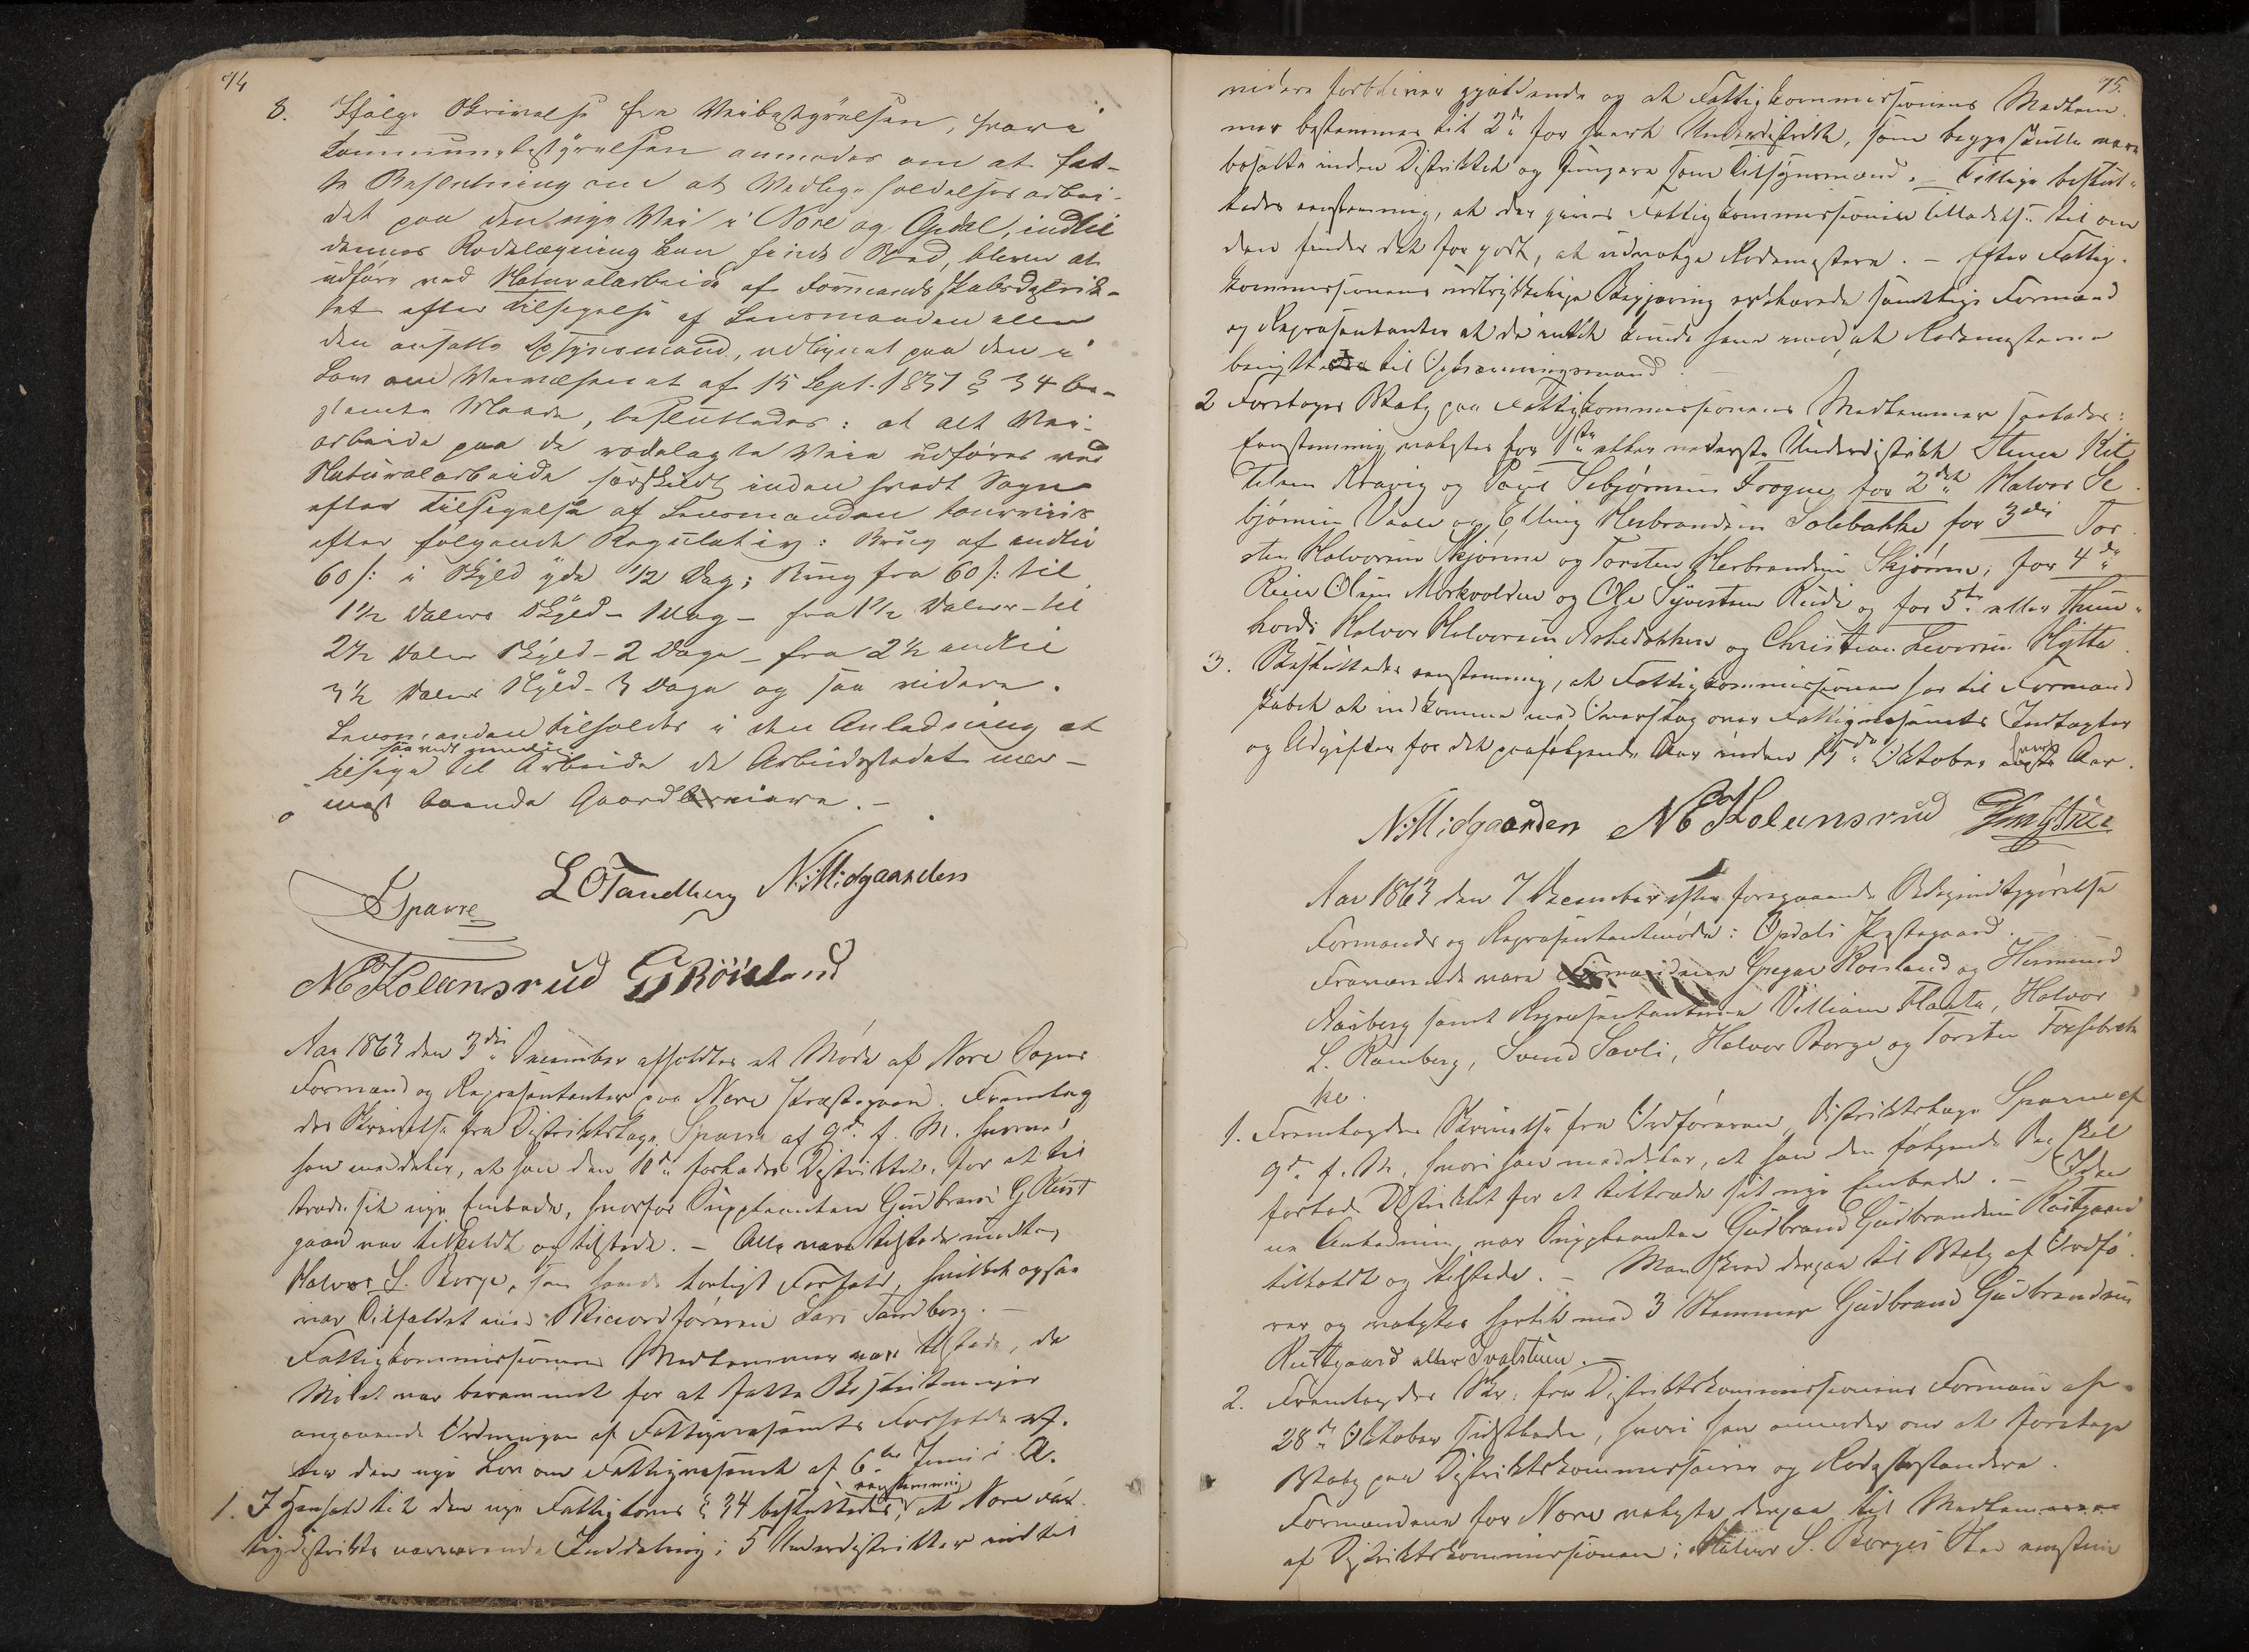 74
8. Ifølge Skrivelse fra Veibestyrelsen, hvori
Kommunebestyrelsen anmodes om at fat-
te Beslutning om at Vedligeholdelsesarbei-
det paa den nye Vei i Nore og Opdal, indtil
dennes Rodelægning kan finde Sted, bliver at
udføre ved Naturalarbeide af Formandskabsdistrik-
tet efter Tilsigelse af Lensmanden eller
den ansatte Opsynsmand, udlignet paa den i
Lov om Veivæsenet af 15 Sept. 1851 § 34 be-
stemte Maade, besluttedes: at alt Vei-
arbeide paa de rodelagte Veie udføres ved
Naturalarbeide særskilt inden hvert Sogn
efter Tilsigelse af Lensmanden tourviis
efter følgende Regulativ: Brug af indtil
60 /: i Skyld yde 1/2 Dag; Brug fra 60 /: til
1 1/2 Dalers Skyld - 1 Dag - fra 1 1/2 Daler - til
2 1/2 Daler Skyld - 2 Dage - fra 2 1/2 indtil
3 1/2 Dalers Skyld - 3 Dage og saa videre.
Lensmanden tilholdes i den Anledning at
saavidt muligt
tilsige til Arbeide de Arbeidsstedet nær-
mest boende Gaardbrugere. -
S Sparre L O Tandberg N: Midgaarden
N E Kolensrud G Røisland
Aar 1863 den 3die December afholdtes et Møde af Nore Sogns
Formænd og Repræsentanter paa Nore Præstegaard. Fremlag
des Skrivelse fra Distriktslæge Sparre af 9de f. M. hvorved
han meddeler, at han den 10de forlader Distriktet, for at til
træde sit nye Embede, hvorfor Suppleanten Gudbrand G. Rust
gaard var tilkaldt og tilstede. - Alle vare tilstede undtag
Halvor S. Borge, som havde lovligt Forfald, hvilket ogsaa
var Tilfældet med Viceordføreren Lars Tandberg. -
Fattigkommissionens Medlemmer vare tilstede, da
Mødet var berammet for at fatte Beslutninger
angaaende Ordningen af Fattigvæsenets Forholde ef-
ter den nye Lov om Fattigvæsenet af 6te Juni d. A.
1. I Henhold til den nye Fattiglovs § 34 besluttedes eenstemmig, at Nore Fat-
tigdistrikts nærværende Inddeling i 5 Underdistrikter indtil
75.
videre forbliver gjældende og at Fattigkommissionens Medlem-
mer bestemmes til 2de for hvert Underdistrikt, som begge skulle være
bosatte inden Distriktet og fungere som Tilsynsmænd. - Tillige beslut-
tedes eenstemmig, at der gives Fattigkommissionen Tilladelse til om
den finder det for godt, at udvælge Rodemestere. - Efter Fattig-
kommissionens udtrykkelige Begjæring erklærede samtlige Formænd
og Repræsentanter at de intet kunde have imod, at Rodemesterne
benyttedes til Opkrævningsmænd.
2 Foretoges Valg paa Fattigkommissionens Medlemmer saaledes:
Eenstemmig valgtes for 1ste eller nederste Underdistrikt Stener Kit
telsen Kravig og Paul Sebjørnsen Frogne, for 2det Halvor Se
bjørnsen Vaale og Elling Herbrandsen Solebakke for 3die Tor
sten Halvorsen Skjønne og Torsten Herbrandsen Skjønne; for 4de
Reier Olsen Mørkvolden og Ole Syvertsen Rudi og for 5te eller Thun-
hovds Halvor Halvorsen Arhedokken og Christian Leversen Hytta.
3. Besluttedes eenstemmig, at Fattigkommissionen har til Formand
skabet at indkomme med Overslag over Fattigvæsenets Indtægter
og Udgifter for det paafølgende Aar inden 15de Oktober hvert Aar.
N: Midgaarden N E Kolensrud
Aar 1863 den 7 December efter foregaaende Bekjendtgjørelse
Formands og Repræsentantmøde i Opdals Præstegaard.
Fraværende vare Formændene Gregar Røisland og Hermund
Aasberg samt Repræsentanterne Villiam Flaata, Halvor
L. Ramberg, Svend Savli, Halvor Borge og Torsten Torsebrek
ke.
1. Fremlagdes Skrivelse fra Ordføreren, Distriktslæge Sparre af
9de f. M., hvori han meddeler, at han den følgende Dag skal
forlade Distriktet for at tiltræde sit nye Embede. - I den
ne Anledning var Suppleanten Gudbrand Gudbrandsen Rustgaard
tilkaldt og tilstede. - Man skred derpaa til Valg af Ordfø-
rer og valgtes hertil med 3 Stemmer Gudbrand Gudbrandsen
Rustgaard eller Tvalstuen. -
2. Fremlagdes Skr: fra Distriktskommissionens Formand af
28de Oktober sidstleden, hvori han anmoder om at foretage
Valg paa Distriktskommissairer og Rodeforstandere.
Formændene for Nore valgte derpaa til Medlemmer
af Distriktskommissionen i Halvor S. Borges Sted eenstem